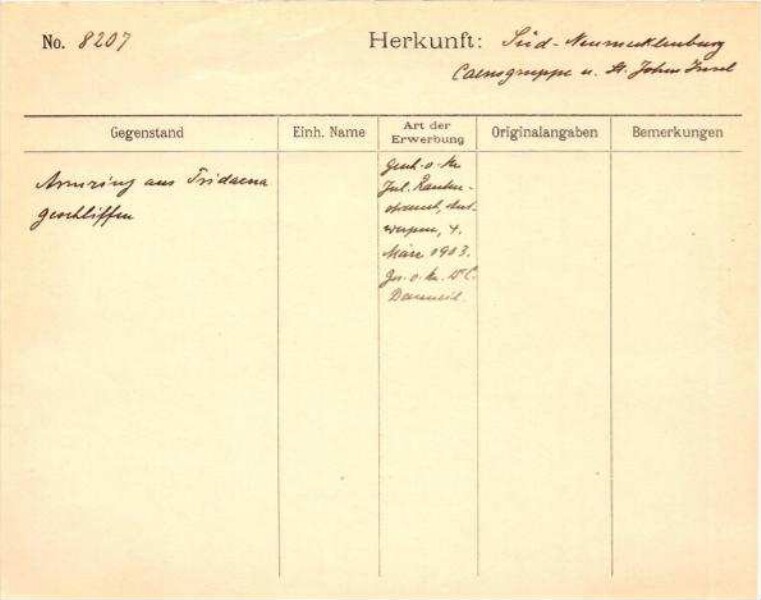 No. 8207
Herkunft: Süd-Neumecklenburg
Caensgruppe u. St. Johns Insel
Gegenstand
Einh. Name
Art der
Erwerbung
Originalangaben
Bemerkungen
Armring aus Tridacna
geschliffen
Gesch. v. Hr.
Jul. Rauten-
strauch, Ant-
werpen, 4.
März 1903.
Ges. v. Hr. Dr C.
Danneil.